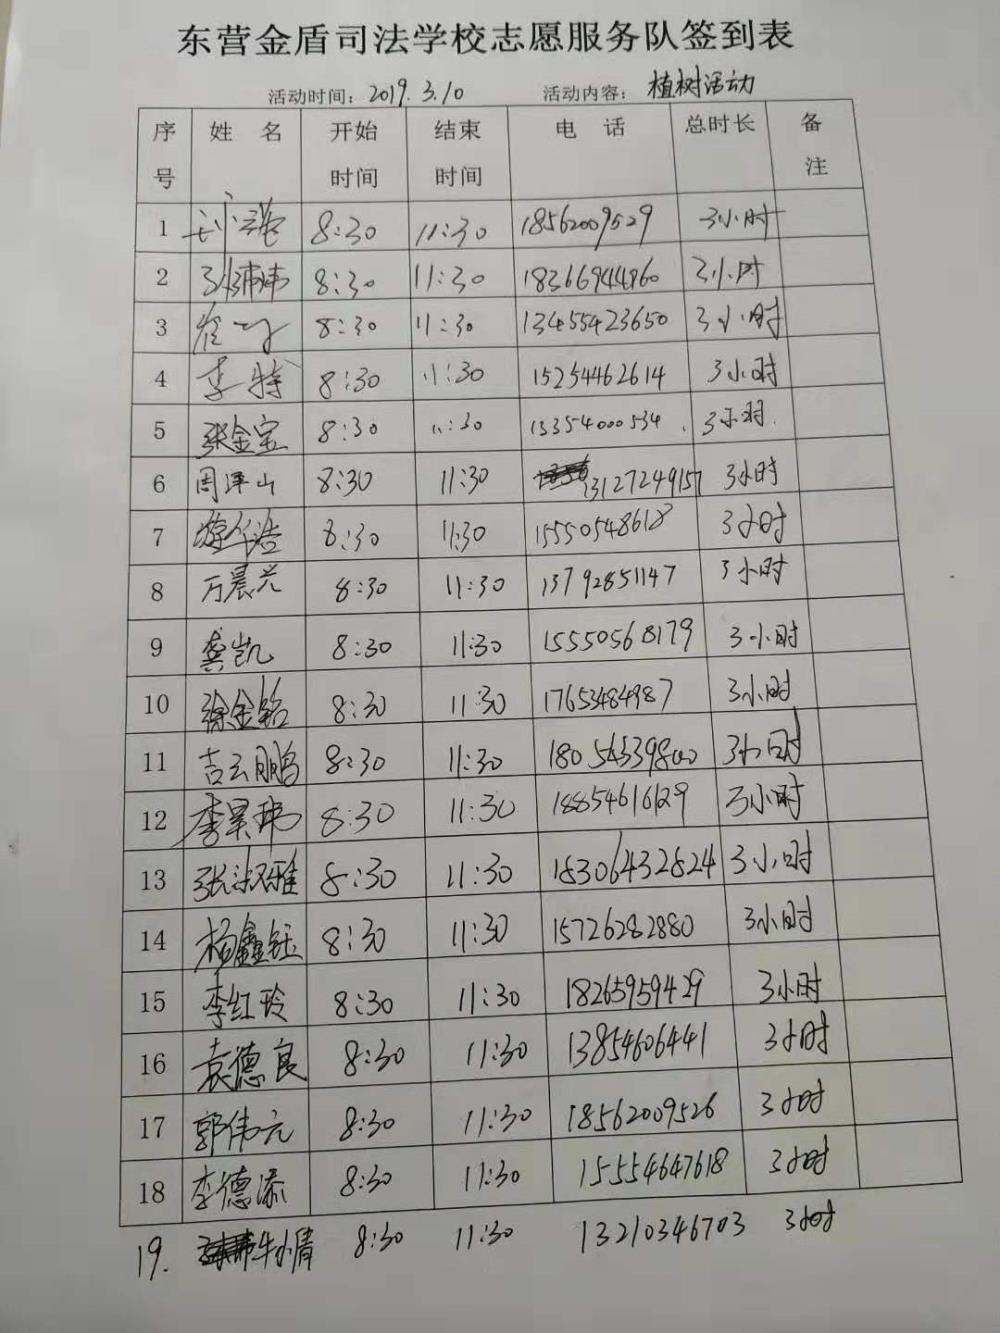 东营金盾司法学校志愿服务队签到表
活动时间：2019.3.10 活动内容：植树活动
序号 姓名 开始时间 结束时间 电话 总时长 备注
1 8:30 11:30 18562009529 3小时
2 8:30 11:30 18366944960 3小时
3 8:30 11:30 13455423650 3小时
4 李特 8:30 11:30 15254462614 3小时
5 张金宝 8:30 11:30 13354000534 3小时
6 周洋山 8:30 11:30 13127249157 3小时
7 8:30 11:30 15550548618 3小时
8 万晨光 8:30 11:30 13792851147 3小时
9 龚凯 8:30 11:30 15550568179 3小时
10 徐金铭 8:30 11:30 17653484987 3小时
11 吉云鹏 8:30 11:30 18054539800 3小时
12 李昊玮 8:30 11:30 18854616129 3小时
13 8:30 11:30 18306432824 3小时
14 杨鑫钰 8:30 11:30 15726282880 3小时
15 李红玲 8:30 11:30 18265959429 3小时
16 袁德良 8:30 11:30 13854606441 3小时
17 郭伟元 8:30 11:30 18562009526 3小时
18 李德添 8:30 11:30 15554647618 3小时
19. 牛小倩 8:30 11:30 13210346703 3小时